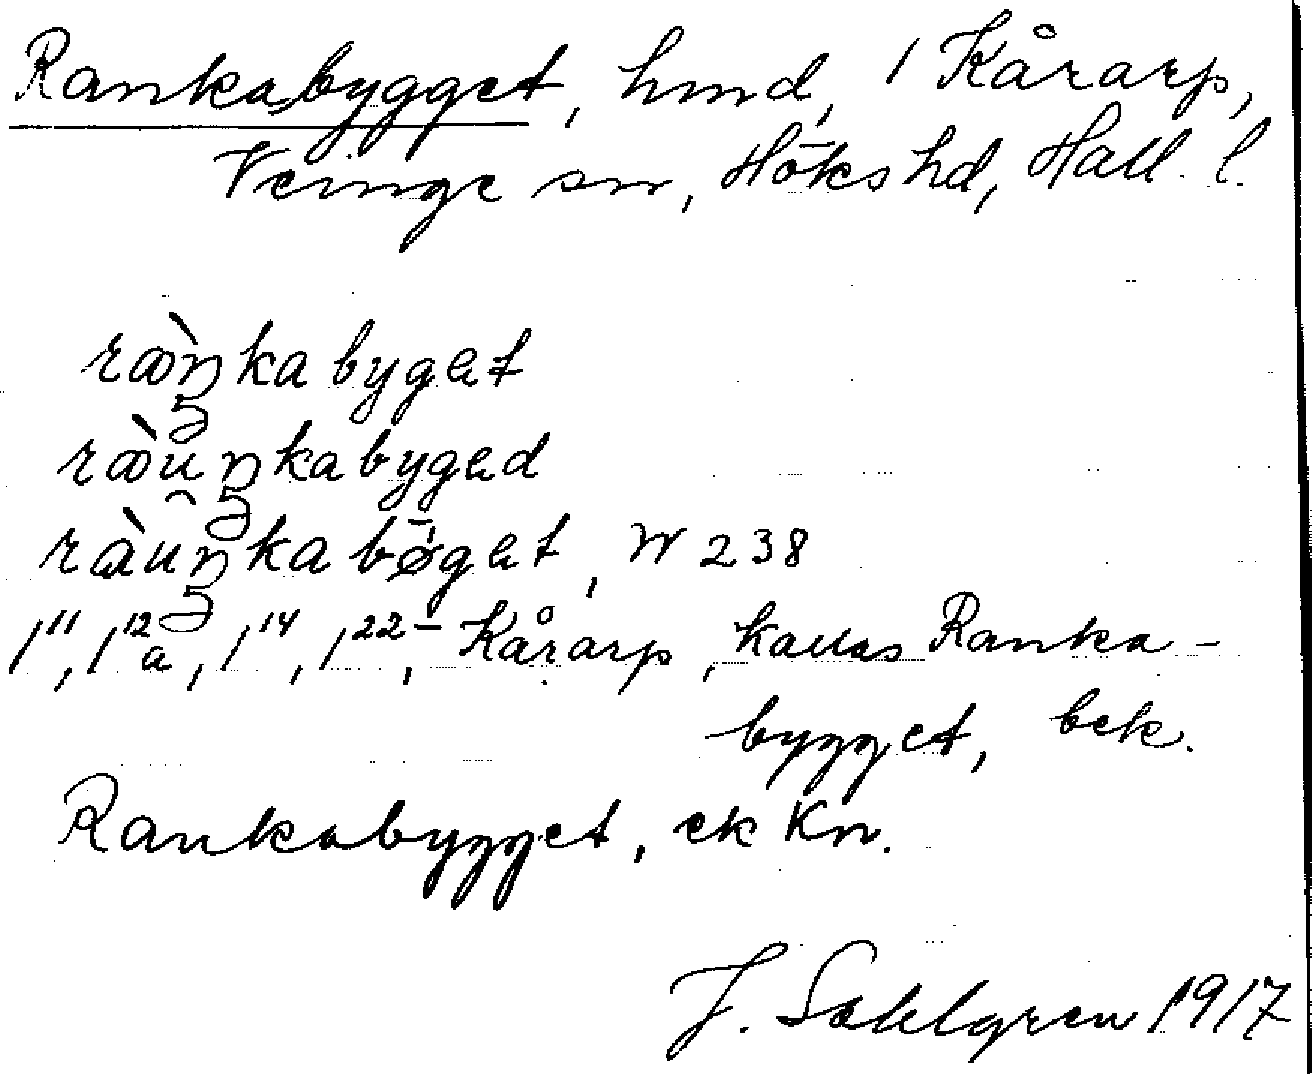 Rankabygget, hmd, 1 Kårarp,
Veinge sn, Höks hd, Hall. l.
ràŋkabygət
ràu̯ŋkabygəd
ràu̯ŋkabø̄gət, W 238
1¹¹, 1¹²a, 1¹⁴, 1²²,- Kårarp, kallas Ranka-
bygget, bek.
Rankabygget, ek Kn.
J. Sahlgren 1917